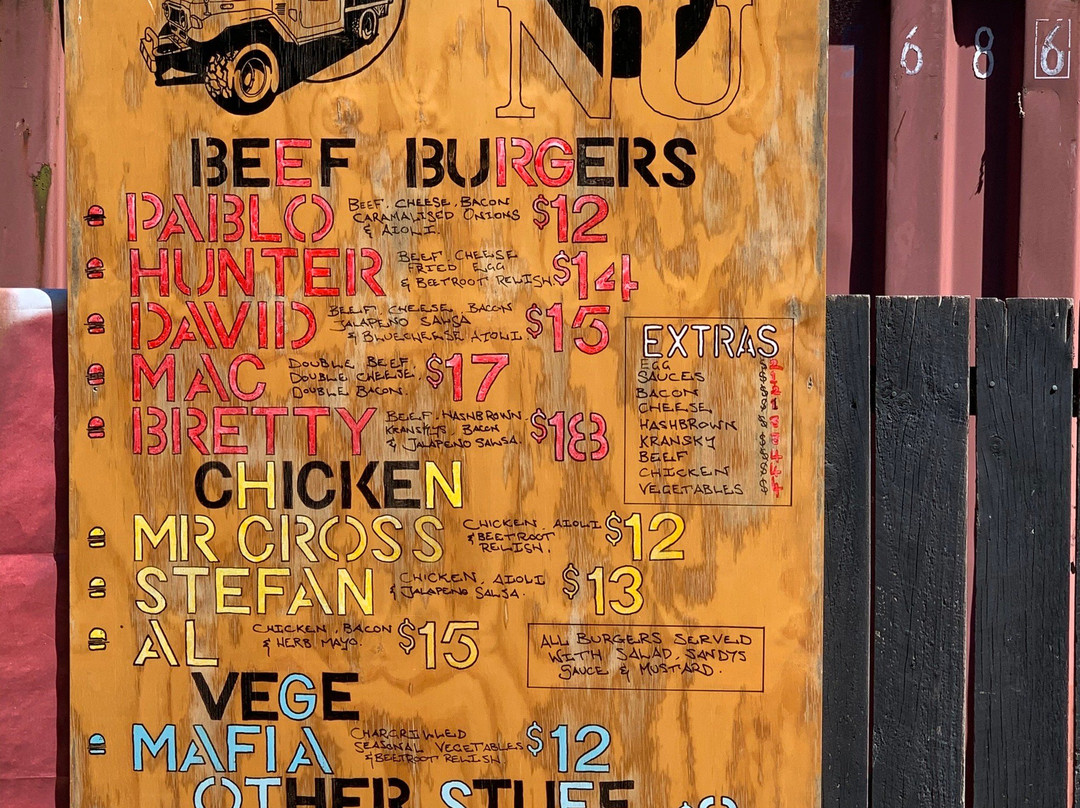 NU
6 8 6
BEEF BURGERS
PABLO BEEF, CHEESE, BACON $12
CARAMALISED ONIONS
& AIOLI.
HUNTER BEEF, CHEESE $14
FRIED EGG
& BEETROOT RELISH.
DAVID BEEF, CHEESE, BACON $15
JALAPENO SALSA
& BLUECHEESE AIOLI.
MAC DOUBLE BEEF, $17
DOUBLE CHEESE,
DOUBLE BACON.
BRETTY BEEF, HASHBROWN, $18
KRANSKYS BACON
& JALAPENO SALSA.
EXTRAS
EGG
SAUCES
BACON
CHEESE
HASHBROWN
KRANSKY
BEEF
CHICKEN
VEGETABLES
CHICKEN
MR CROSS CHICKEN, AIOLI $12
& BEETROOT
RELISH.
STEFAN CHICKEN, AIOLI $13
& JALAPENO SALSA.
AL CHICKEN, BACON $15
& HERB MAYO.
ALL BURGERS SERVED
WITH SALAD, SANDYS
SAUCE & MUSTARD.
VEGE
MAFIA CHARGRILLED $12
SEASONAL VEGETABLES
& BEETROOT RELISH.
OTHER STUFF